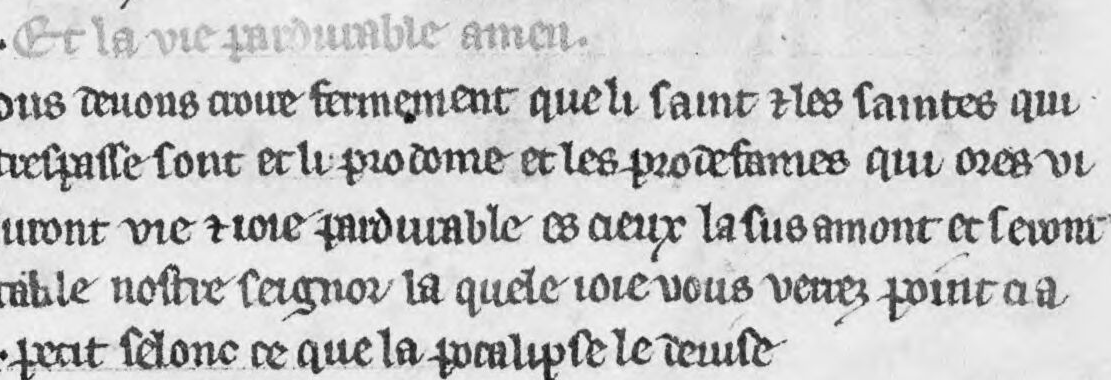 . Et la vie pardurable amen.
ous deuons croire fermement que li saint ⁊ les saintes qui
trespasse sont et li prodome et les prodefames qui ores vi
auront vie ⁊ ioie pardurable es cieux la sus amont et seront
table nostre seignor la quele ioie vous verrez point ci a
. petit selonc ce que la pocalipse le deuise